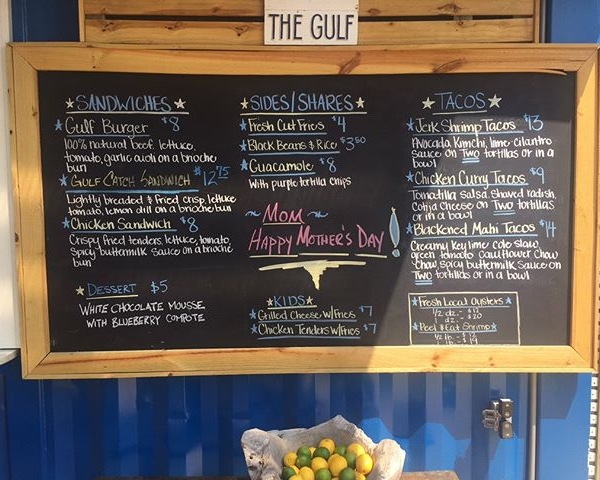 THE GULF
SANDWICHES
Gulf Burger $8
100% natural beef, lettuce,
tomato, garlic aioli on a brioche
bun
Gulf Catch Sandwich $12.75
Lightly breaded & fried crisp, lettuce
tomato, lemon dill on a brioche bun
Chicken Sandwich $8
Crispy fried tenders, lettuce, tomato,
spicy buttermilk sauce on a brioche
bun
DESSERT $5
WHITE CHOCOLATE MOUSSE
WITH BLUEBERRY COMPOTE
SIDES/SHARES
Fresh Cut Fries $4
Black Beans & Rice $3.50
Guacamole $8
with purple tortilla chips
~ MOM ~
HAPPY MOTHER'S DAY!
KIDS
Grilled Cheese w/Fries $7
Chicken Tenders w/Fries $7
TACOS
Jerk Shrimp Tacos $13
Avocado, Kimchi, lime cilantro
sauce on TWO tortillas or in a
bowl
Chicken Curry Tacos $9
Tomatilla salsa, shaved radish,
Cotija Cheese on TWO tortillas
or in a bowl
Blackened Mahi Tacos $14
Creamy key lime cole slaw,
green tomato cauliflower chow
chow, spicy buttermilk sauce on
TWO tortillas or in a bowl
Fresh Local Oysters
1/2 dz. -
dz. - $20
Peel & Eat Shrimp
1/2 lb. - $12
1 lb. - $19